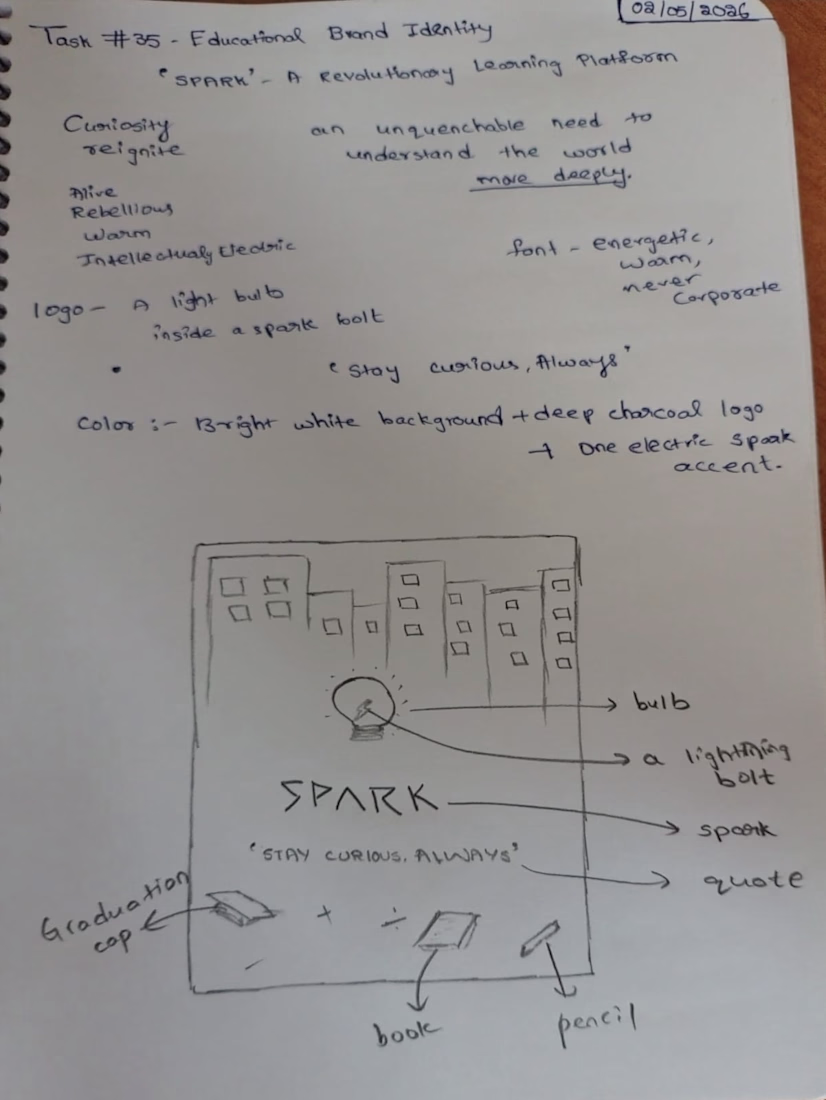 02/05/2026
Task #35 - Educational Brand Identity
'SPARK' - A Revolutionary Learning Platform
Curiosity
reignite
an unquenchable need to
understand the world
more deeply.
Alive
Rebellious
Warm
Intellectualy Electric
font - energetic,
warm,
never
corporate
logo - A light bulb
inside a spark bolt
'Stay curious, Always'
Color :- Bright white background + deep charcoal logo
+ One electric spark
accent.
bulb
a lightning
bolt
SPARK
spark
'STAY CURIOUS, ALWAYS'
quote
Graduation
cap
+ ÷
book
pencil